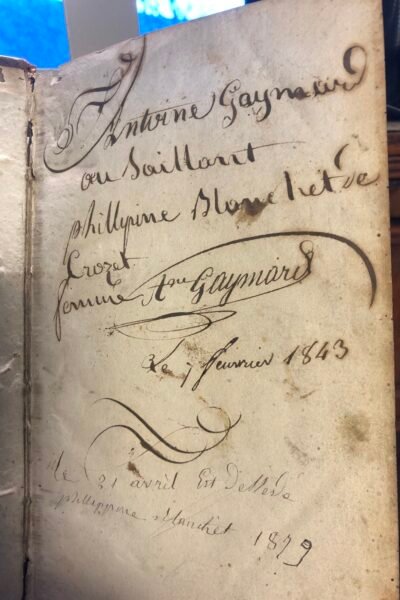 Antoine Gaymard
au Saillant
phillipine Blanchet de
Crozet
femme Ane Gaymard
Le 7 feuvrier 1843
Le 21 avril Est Dessede
phillippine Blanchet 1879